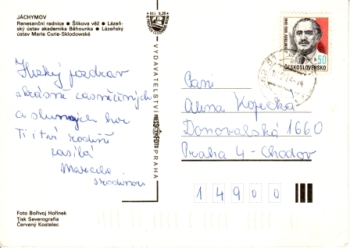 JÁCHYMOV
Renesanční radnice • Šlikova věž • Lázeň-
ský ústav akademika Běhounka • Lázeňský
ústav Marie Curie-Skłodowské
pozdrav
zasněžených
a slunných hor
Ti i tvé rodině
zasílá
Marcela
s rodinou
VYDAVATELSTVÍ
PRAHA
ČESKOSLOVENSKO
50
Paní
Alena Kopecká
Donovalská 1660
Praha 4 - Chodov
1 4 9 0 0
Foto Bořivoj Hořínek
Tisk Severografia
Červený Kostelec